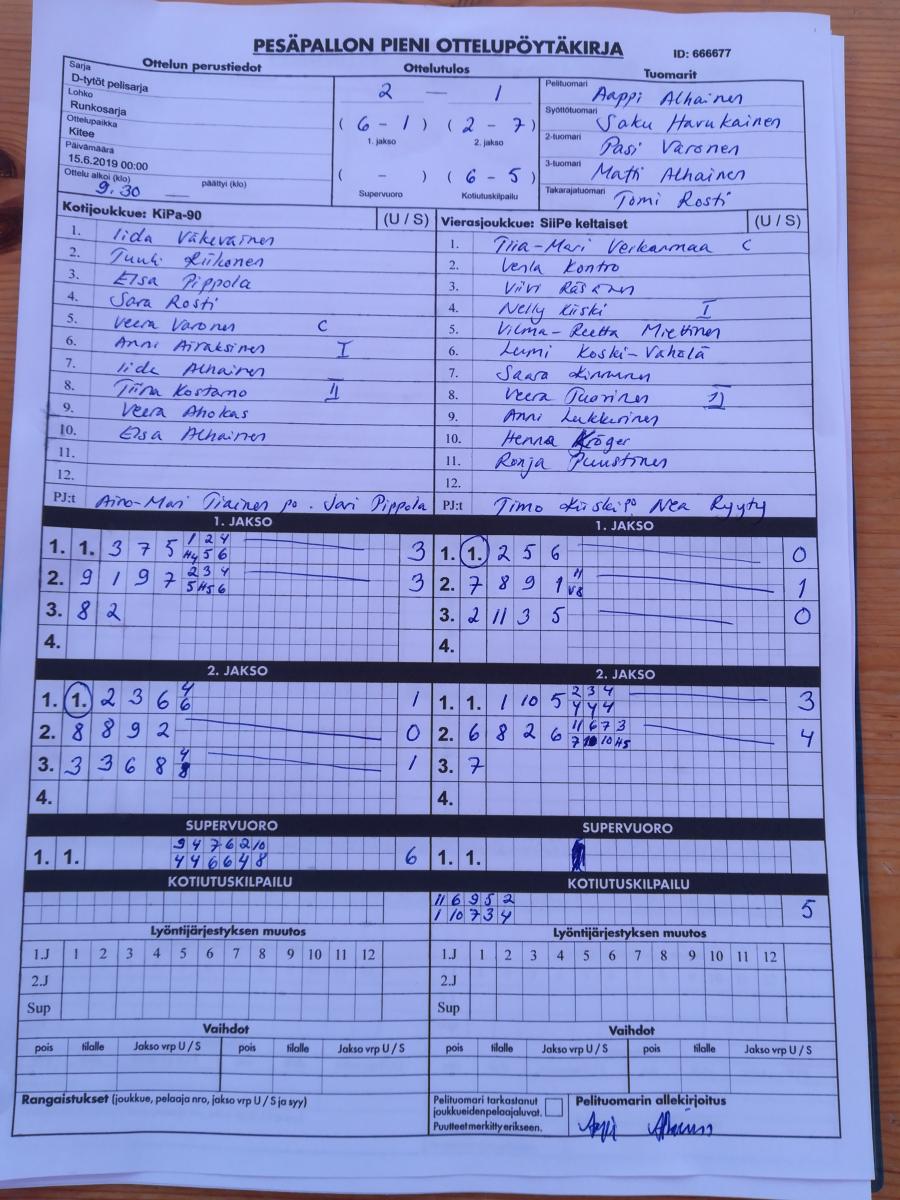 PESÄPALLON PIENI OTTELUPÖYTÄKIRJA
ID: 666677
Ottelun perustiedot
Sarja
D-tytöt pelisarja
Lohko
Runkosarja
Ottelupaikka
Kitee
Päivämäärä
15.6.2019 00:00
Ottelu alkoi (klo) päättyi (klo)
9.30
Ottelutulos
2 — 1
( 6 - 1 ) ( 2 - 7 )
1. jakso 2. jakso
( - ) ( 6 - 5 )
Supervuoro Kotiutuskilpailu
Tuomarit
Pelituomari Aappi Alhainen
Syöttötuomari Saku Harukainen
2-tuomari Pasi Varonen
3-tuomari Matti Alhainen
Takarajatuomari Tomi Rosti
Kotijoukkue: KiPa-90 (U / S)
1. Iida Väkeväinen
2. Tuuli Riikonen
3. Elsa Pippola
4. Sara Rosti
5. Veera Varonen C
6. Anni Airaksinen I
7. Iida Alhainen
8. Tiina Kostamo II
9. Veera Ahokas
10. Elsa Alhainen
11.
12.
PJ:t Aino-Mari Tiainen po. Jari Pippola
Vierasjoukkue: SiiPe keltaiset (U / S)
1. Tiia-Mari Verkanmaa C
2. Venla Kontro
3. Viivi Räsänen
4. Nelly Kiiski I
5. Vilma-Reetta Miettinen
6. Lumi Koski-Vähälä
7. Saara Kinnunen
8. Veera Tuovinen II
9. Anni Lukkarinen
10. Henna Kröger
11. Ronja Puustinen
12.
PJ:t Timo Kiiski po Nea Ryyty
1. JAKSO
1. 1. 3 7 5 1 2 4 3
H4 5 6
2. 9 1 9 7 2 3 4 3
5 H5 6
3. 8 2
4.
1. JAKSO
1. 1. 2 5 6 0
2. 7 8 9 1 11 1
V8
3. 2 11 3 5 0
4.
2. JAKSO
1. 1. 2 3 6 4 1
6
2. 8 8 9 2 0
3. 3 3 6 8 4 1
8
4.
2. JAKSO
1. 1. 1 10 5 2 3 4 3
4 4 4
2. 6 8 2 6 11 6 7 3 4
7 10 10 H5
3. 7
4.
SUPERVUORO
1. 1. 9 4 7 6 2 10 6
4 4 6 6 4 8
SUPERVUORO
1. 1.
KOTIUTUSKILPAILU
KOTIUTUSKILPAILU
11 6 9 5 2 5
1 10 7 3 4
Lyöntijärjestyksen muutos
1.J 1 2 3 4 5 6 7 8 9 10 11 12
2.J
Sup
Lyöntijärjestyksen muutos
1.J 1 2 3 4 5 6 7 8 9 10 11 12
2.J
Sup
Vaihdot
pois tilalle Jakso vrp U / S pois tilalle Jakso vrp U / S
Vaihdot
pois tilalle Jakso vrp U / S pois tilalle Jakso vrp U / S
Rangaistukset (joukkue, pelaaja nro, jakso vrp U / S ja syy)
Pelituomari tarkastanut
joukkueidenpelaajaluvat.
Puutteet merkitty erikseen.
Pelituomarin allekirjoitus